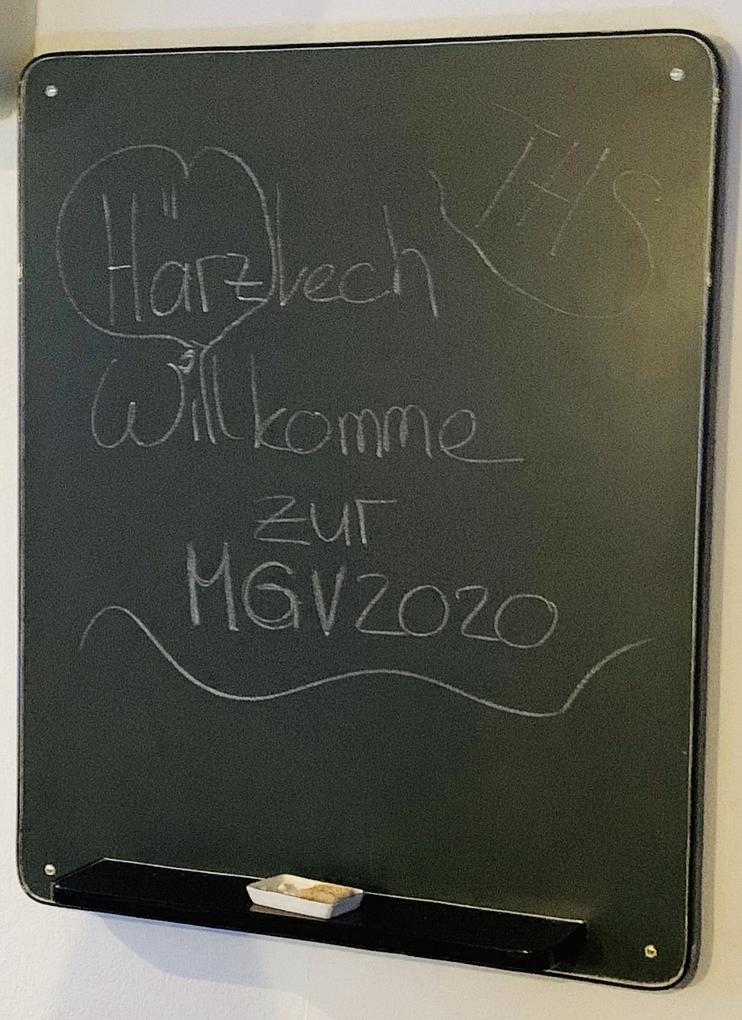 THS
Härzlech
Willkomme
zur
MGV2020